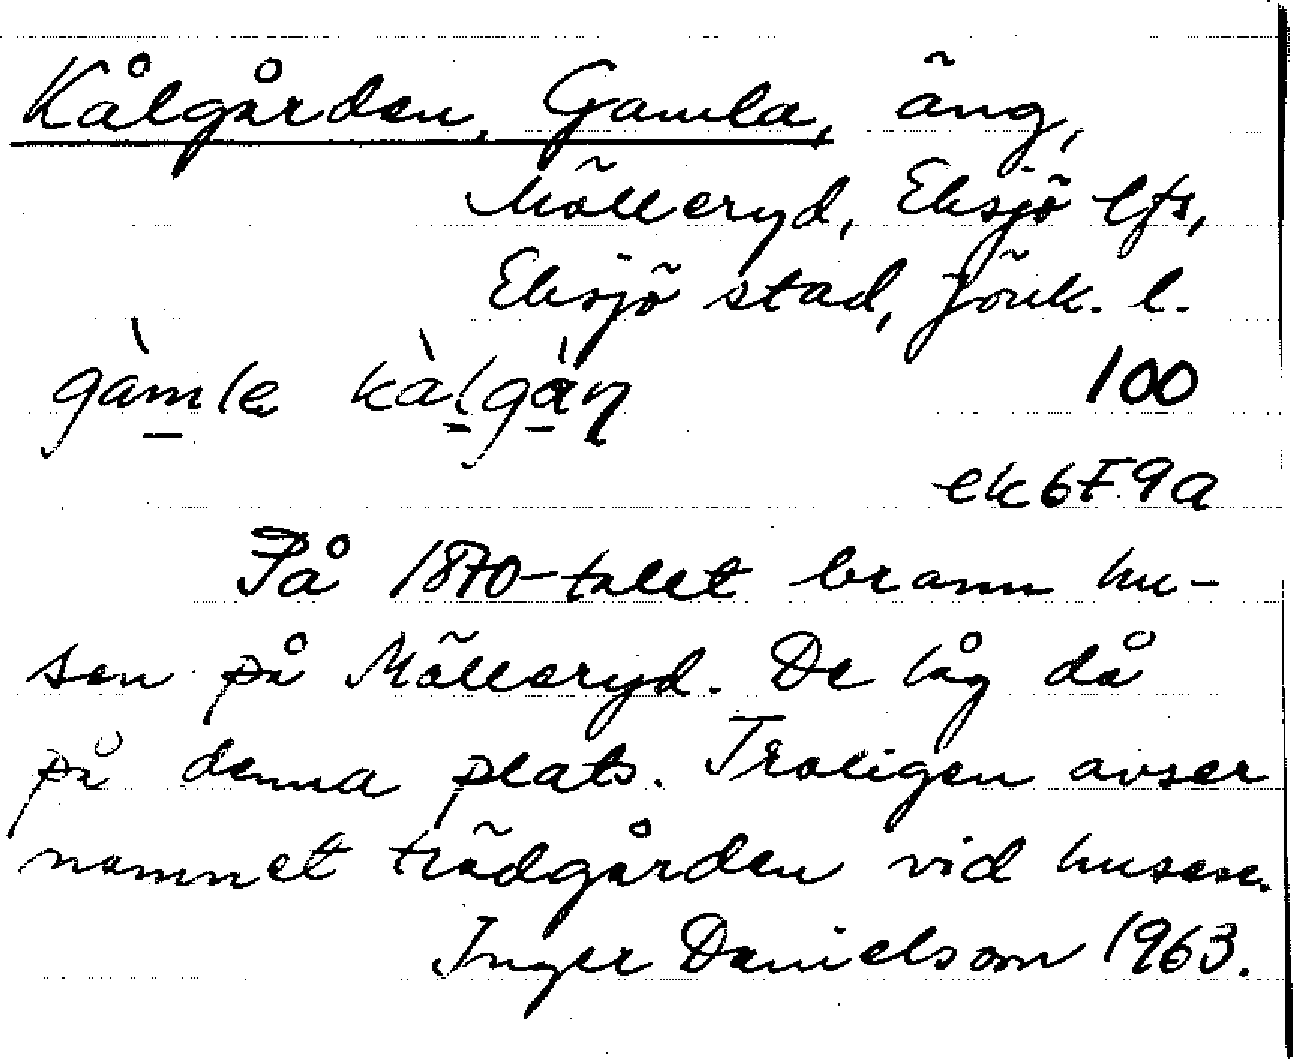 Kålgården, Gamla, äng,
Mölleryd, Eksjö lfs,
Eksjö stad, Jönk. l.
gàmle kàlgàn
100
ek 6F9a
På 1870-talet brann hu-
sen på Mölleryd. De låg då
på denna plats. Troligen avser
namnet trädgården vid husen.
Inger Danielsson 1963.